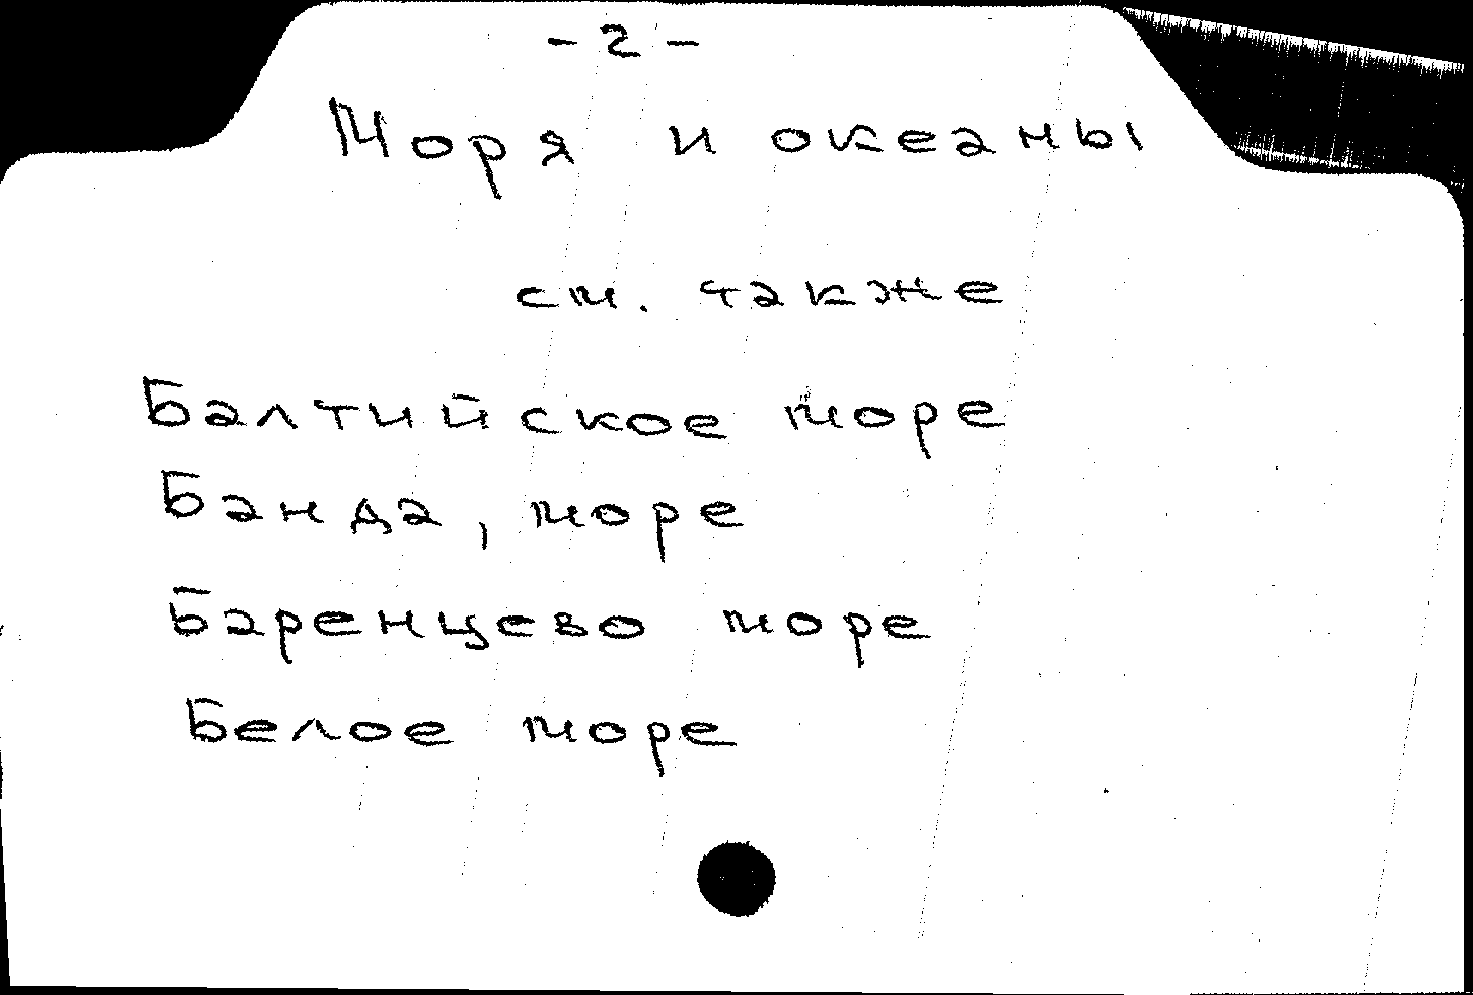 - 2 -
Моря и океаны
см. также
Балтийское море
Банда, море
Баренцево море
Белое море